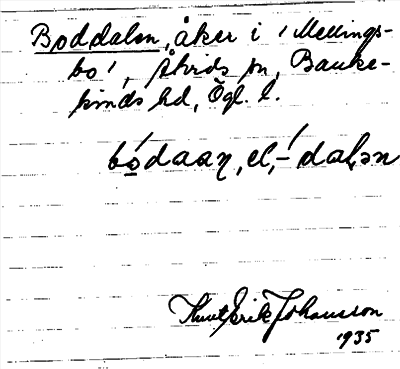 Boddalen, åker i 'Mellings-
bo', Åtvids sn, Banke-
kinds hd, Ögl. l.
bódaaṇ, el, -́dalən
Knut Erik Johansson
1935